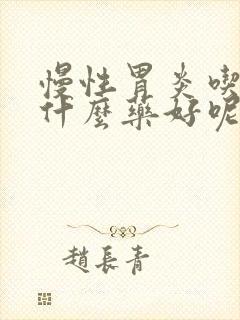 慢性胃炎喫
什麼藥好呢
趙長青